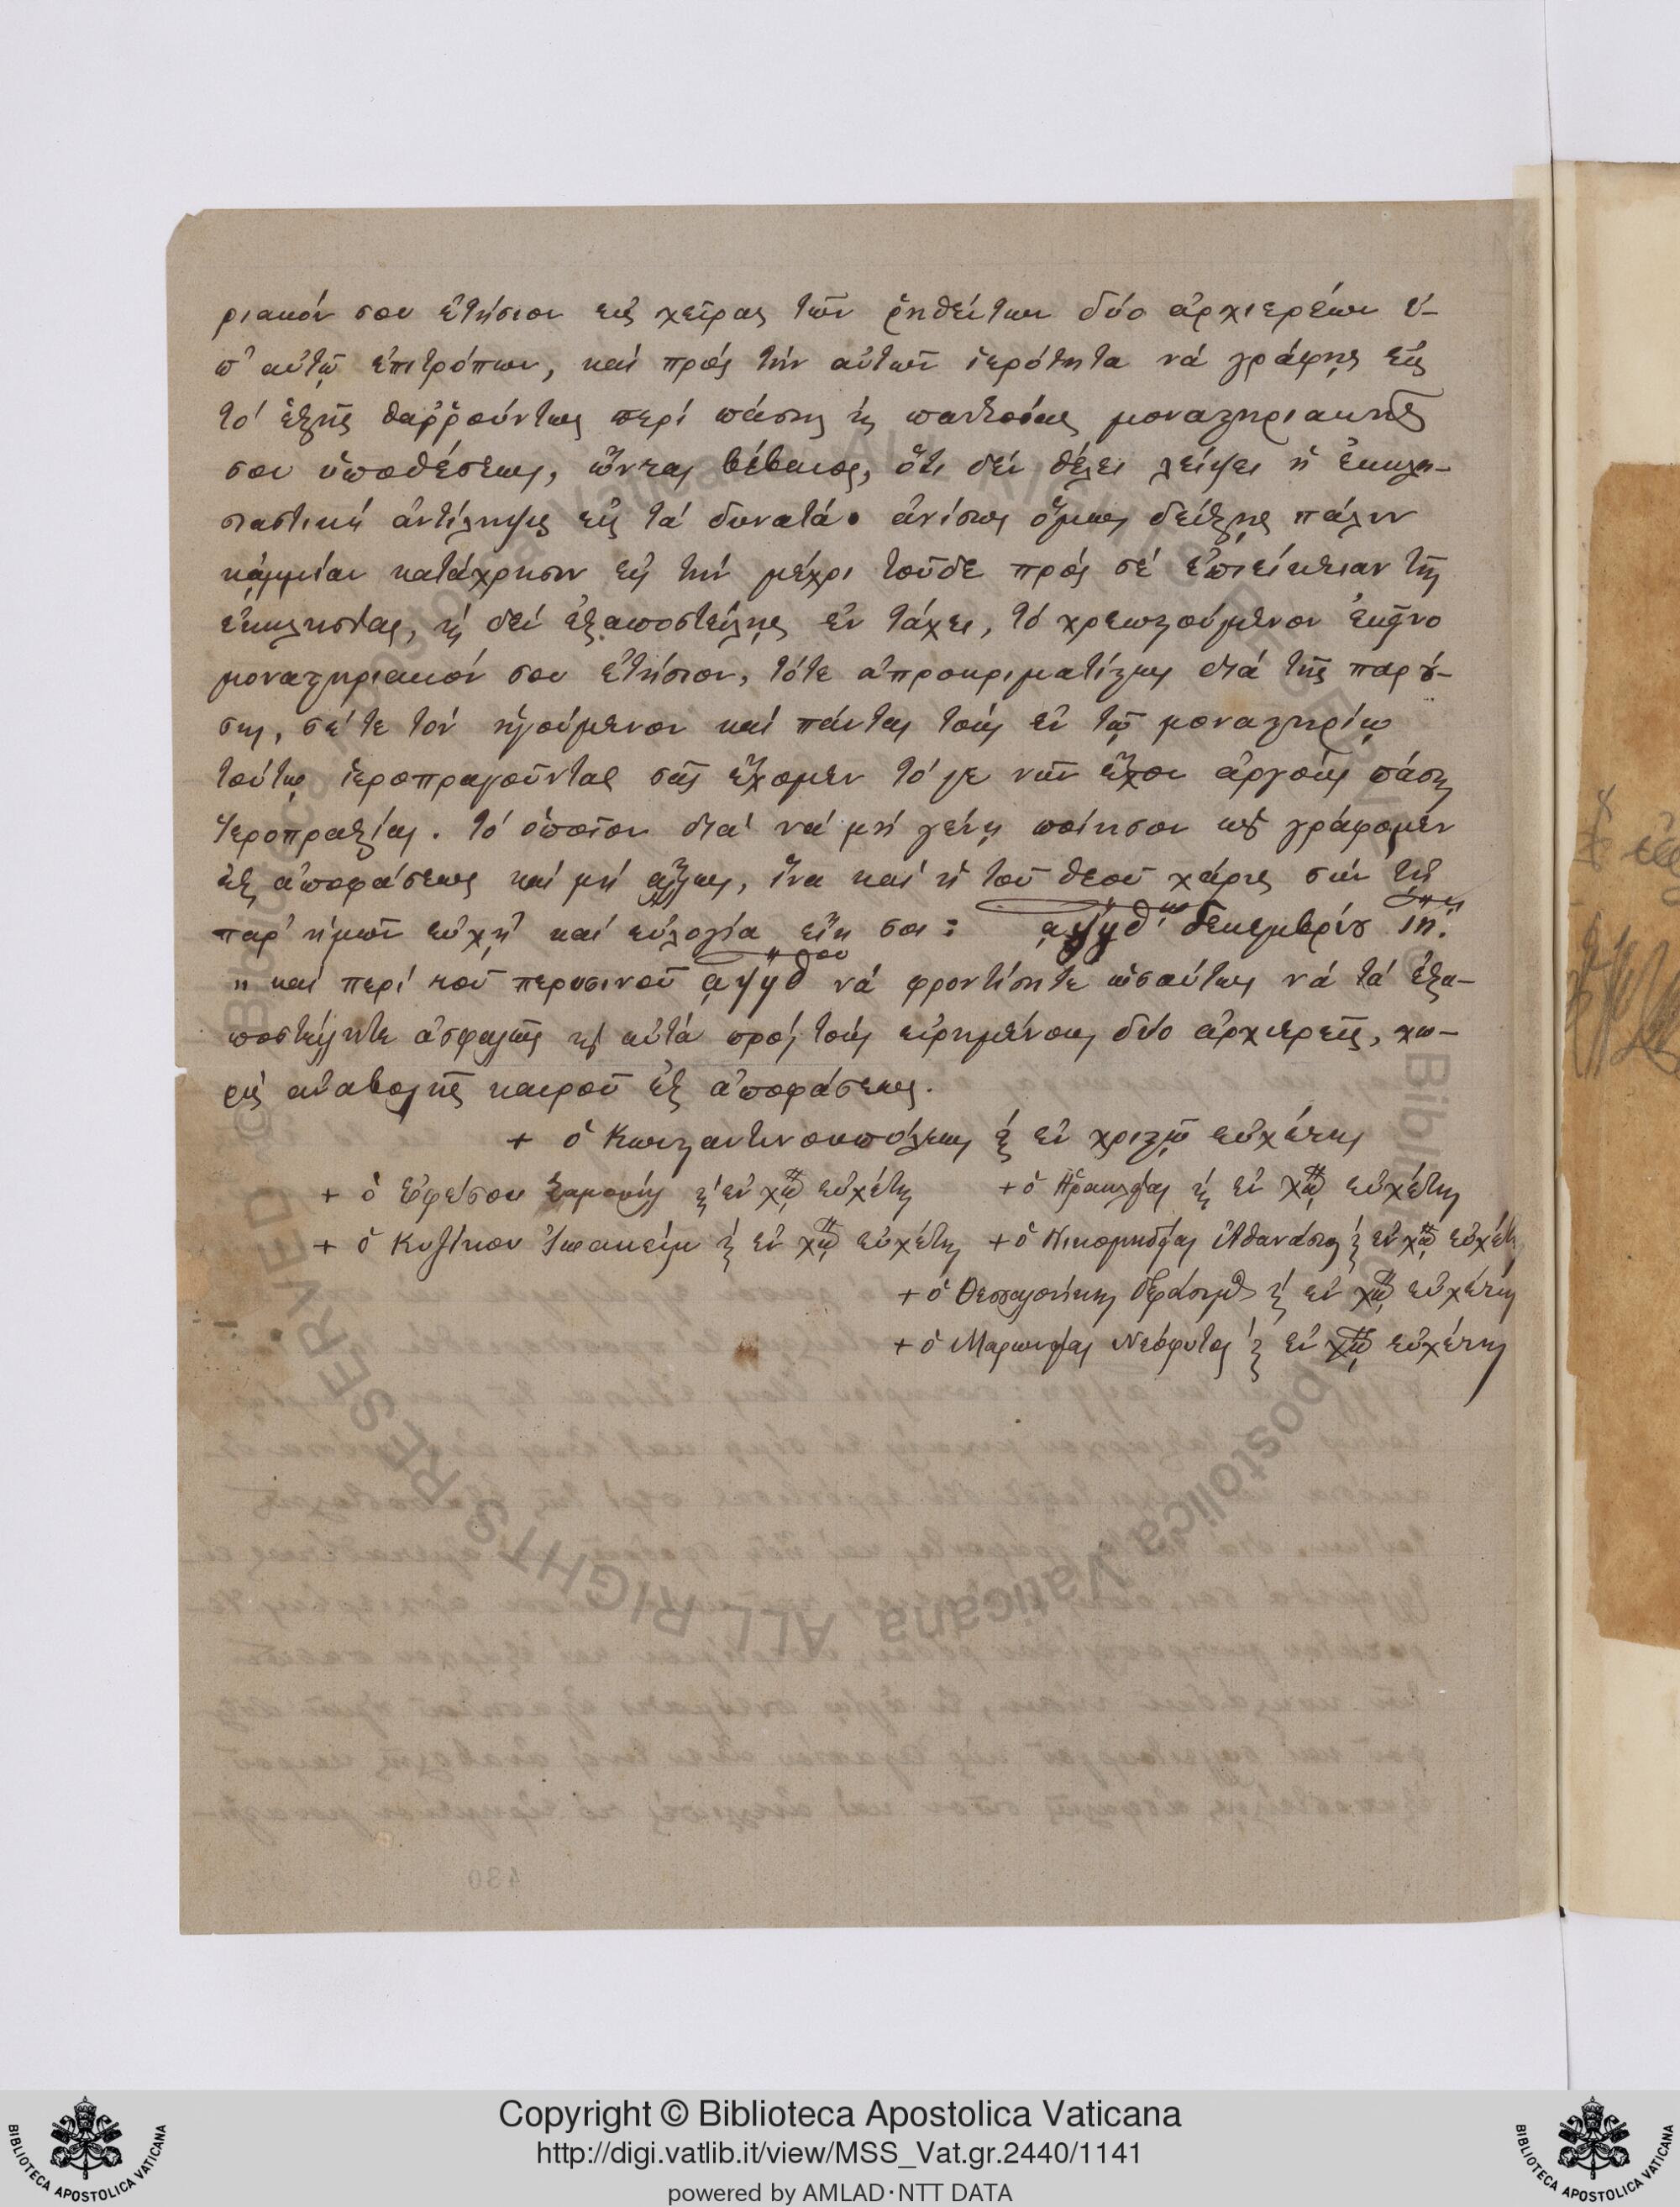 ριακόν σου ἐτήσιον εἰς χεῖρας τῶν ῥηθέντων δύο ἀρχιερέων ὑ-
π' αὐτῷ ἐπιτρόπων, καί πρός τήν αὐτῶν ἱερότητα νά γράφῃς εἰς
τό ἑξῆς θαῤῥούντως περί πάσης ϗ παντοίας μοναστηριακῆς
σου ὑποθέσεως, ὤντας βέβαιος, ὅτι δέν θέλει λείψει ἡ ἐκκλη-
σιαστική ἀντίληψις εἰς τά δυνατά· ἀνίσως ὅμως δείξῃς πάλιν
κάμμίαν κατάχρησιν εἰς τήν μέχρι τοῦδε πρός σέ ἐπιείκειαν τῆς
ἐκκλησίας, ϗ δέν ἐξαποστείλῃς ἐν τάχει, τό χρεωστούμενον ἐκεῖνο
μοναστηριακόν σου ἐτήσιον, τότε ἀπροκριματίστως διά τῆς παρού-
σης, σέ τε τόν ἡγούμενον καί πάντας τούς ἐν τῷ μοναστηρίῳ
τούτῳ ἱεροπραγοῦντας σᾶς ἔχομεν τό γε νῦν ἔχον ἀργούς πάσης
ἱεροπραξίας. τό ὁποῖον διά νά μή γένῃ ποίησον ὡς γράφομεν
ἐξ ἀποφάσεως καί μή ἄλλως, ἵνα καί ἡ τοῦ θεοῦ χάρις σύν τῇ
παρ' ἡμῶν εὐχῇ καί εὐλογίᾳ εἴη σοι: δεκεμβρίου ιη:
" καί περί τοῦ περυσινοῦ νά φροντίσητε ὡσαύτως νά τά ἐξα-
ποστείλητε ἀσφαλῶς ϗ αὐτά πρός τούς εἰρημένους δύο ἀρχιερεῖς, χω-
ρίς ἀναβολῆς καιροῦ ἐξ ἀποφάσεως.
+ ὁ Κωνσταντινουπόλεως ϗ ἐν χριστῷ εὐχέτης
+ ὁ Ἐφέσου Σαμουήλ ϗ ἐν χῷ εὐχέτης + ὁ Ἡρακλείας ϗ ἐν χῷ εὐχέτης
+ ὁ Κυζίκου Ἰωακείμ ϗ ἐν χῷ εὐχέτης + ὁ Νικομηδείας Ἀθανάσιος ϗ ἐν χῷ εὐχέτης
+ ὁ Θεσσαλονίκης Γεράσιμος ϗ ἐν χῷ εὐχέτης
+ ὁ Μαρωνείας Νεόφυτος ϗ ἐν χῷ εὐχέτης
Biblioteca Apostolica Vaticana ALL RIGHTS RESERVED ©
Copyright © Biblioteca Apostolica Vaticana
http://digi.vatlib.it/view/MSS_Vat.gr.2440/1141
powered by AMLAD·NTT DATA
BIBLIOTECA APOSTOLICA VATICANA
BIBLIOTECA APOSTOLICA VATICANA